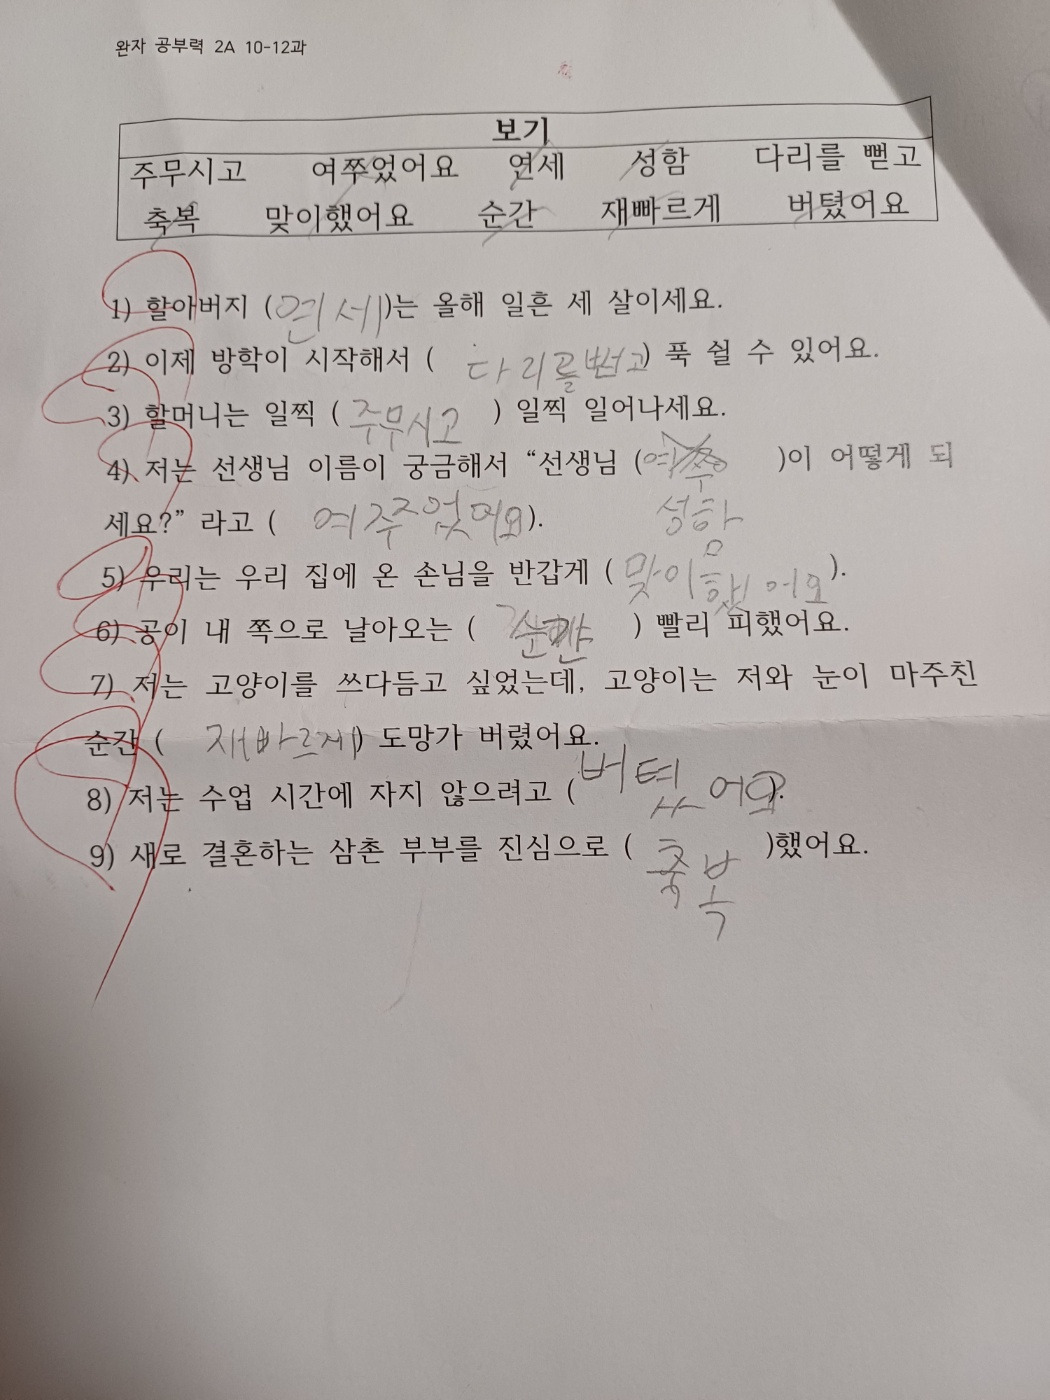 완자 공부력 2A 10-12과
보기
주무시고 여쭈었어요 연세 성함 다리를 뻗고
축복 맞이했어요 순간 재빠르게 버텼어요
1) 할아버지 (연세)는 올해 일흔 세 살이세요.
2) 이제 방학이 시작해서 ( 다리를뻗고) 푹 쉴 수 있어요.
3) 할머니는 일찍 (주무시고 ) 일찍 일어나세요.
4) 저는 선생님 이름이 궁금해서 “선생님 (여쭈 )이 어떻게 되
성함
세요?” 라고 ( 여쭈었어요).
5) 우리는 우리 집에 온 손님을 반갑게 (맞이했어요).
6) 공이 내 쪽으로 날아오는 ( 순간 ) 빨리 피했어요.
7) 저는 고양이를 쓰다듬고 싶었는데, 고양이는 저와 눈이 마주친
순간 ( 재빠르게) 도망가 버렸어요.
8) 저는 수업 시간에 자지 않으려고 (버텼어요).
9) 새로 결혼하는 삼촌 부부를 진심으로 ( 축복 )했어요.